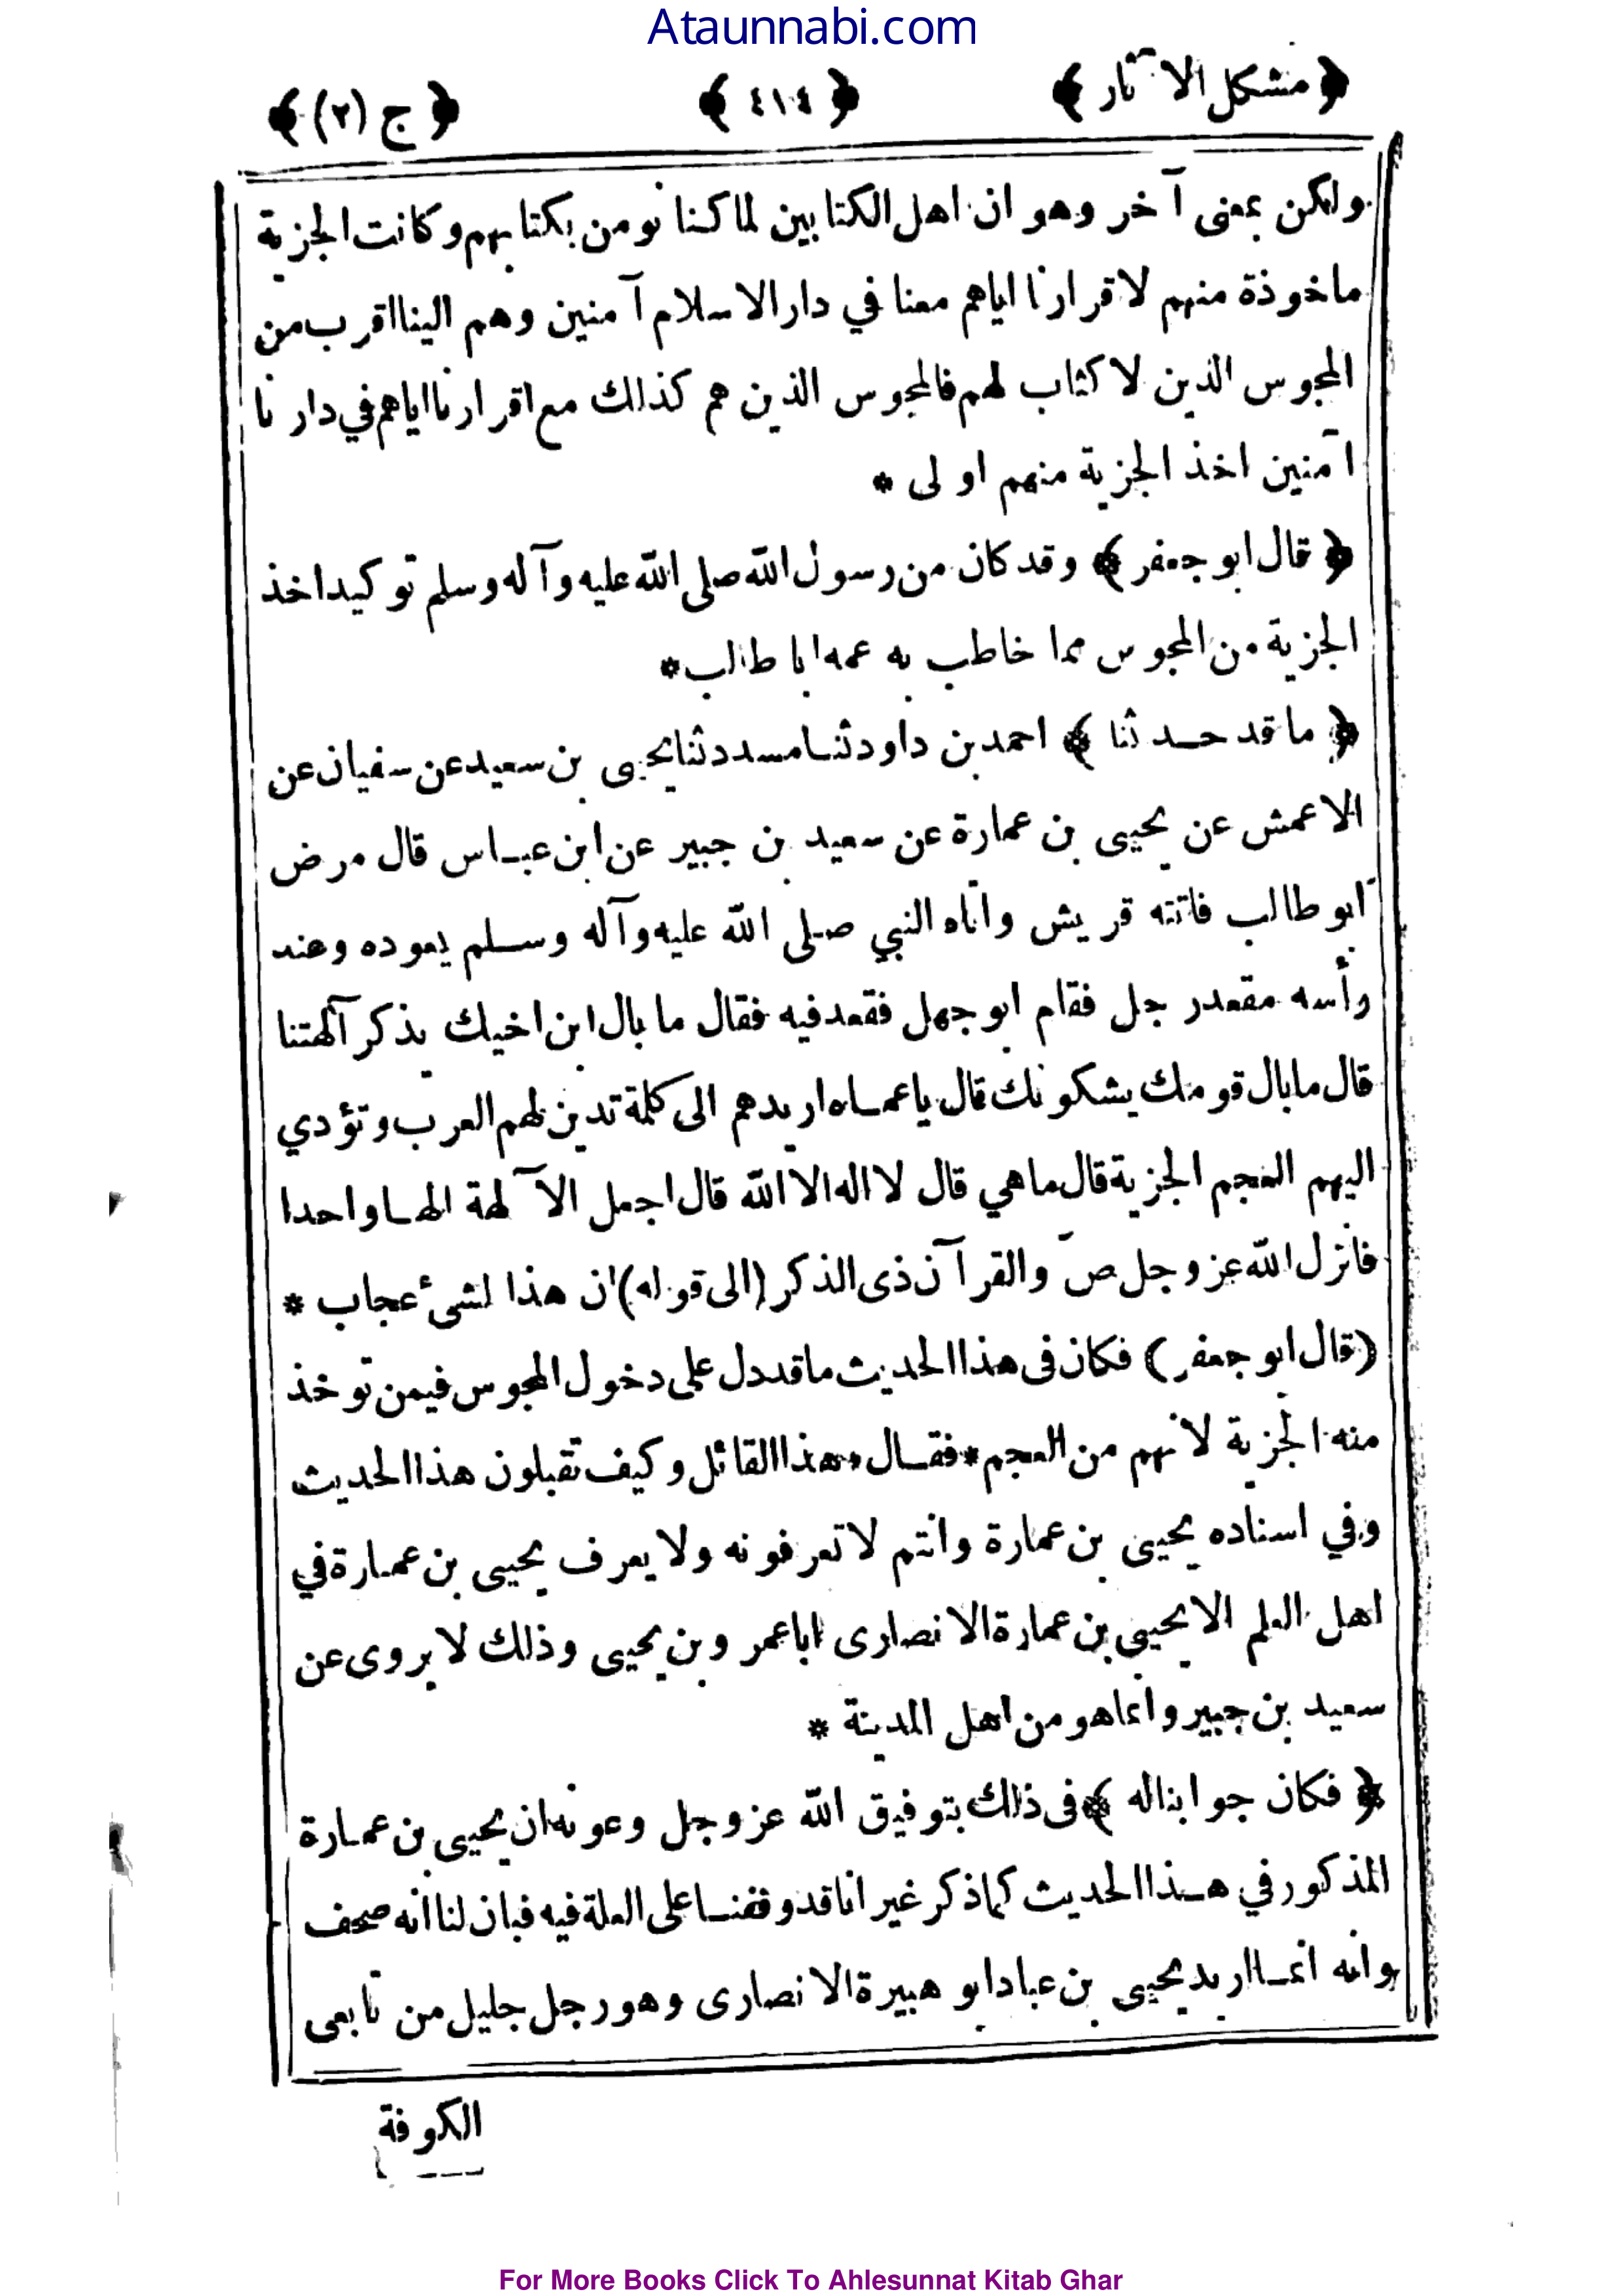 Ataunnabi.com
﴿ مشكل الآثار ﴾ ﴿ ٤١٤ ﴾ ﴿ ج (٢) ﴾
ولكن بمعنى آخر وهو ان اهل الكتابين لما كنا نومن بكتابهم وكانت الجزية
ماخوذة منهم لاقرارنا اياهم معنا في دار الاسلام آمنين وهم الينا اقرب من
المجوس الذين لا كتاب لهم فالمجوس الذين هم كذلك مع اقرارنا اياهم في دارنا
آمنين اخذ الجزية منهم اولى *
﴿ قال ابو جعفر ﴾ وقد كان من رسول الله صلى الله عليه وآله وسلم توكيد اخذ
الجزية من المجوس مما خاطب به عمه ابا طالب *
﴿ ما قد حدثنا ﴾ احمد بن داود ثنا مسدد ثنا يحيى بن سعيد عن سفيان عن
الاعمش عن يحيى بن عمارة عن سعيد بن جبير عن ابن عباس قال مرض
ابو طالب فاتته قريش واتاه النبي صلى الله عليه وآله وسلم يعوده وعند
رأسه مقعد رجل فقام ابو جهل فقعد فيه فقال ما بال ابن اخيك يذكر آلهتنا
قال ما بال قومك يشكونك قال يا عماه اريدهم الى كلمة تدين لهم العرب وتؤدي
اليهم العجم الجزية قال ما هي قال لا اله الا الله قال اجعل الآلهة الها واحدا
فانزل الله عز وجل ص والقرآن ذى الذكر (الى قوله) ان هذا لشئ عجاب *
(قال ابو جعفر) فكان فى هذا الحديث ما قد دل على دخول المجوس فيمن توخذ
منه الجزية لانهم من العجم * فقال هذا القائل وكيف تقبلون هذا الحديث
وفي اسناده يحيى بن عمارة وانتم لا تعرفونه ولا يعرف يحيى بن عمارة في
اهل العلم الا يحيى بن عمارة الانصارى ابا عمرو بن يحيى وذلك لا يروى عن
سعيد بن جبير وانما هو من اهل المدينة *
﴿ فكان جوابنا له ﴾ فى ذلك بتوفيق الله عز وجل وعونه ان يحيى بن عمارة
المذكور في هذا الحديث كما ذكر غير انا قد وقفنا على العلة فيه فبان لنا انه صحف
وانه انما اريد يحيى بن عباد ابو هبيرة الانصارى وهو رجل جليل من تابعى
الكوفة
For More Books Click To Ahlesunnat Kitab Ghar